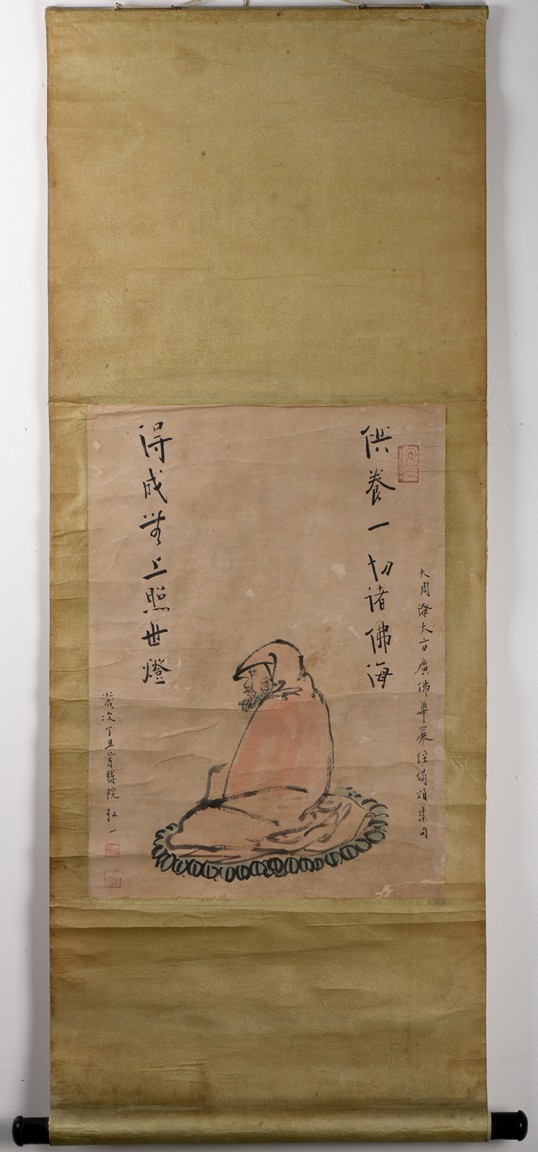 大周譯大方廣佛華嚴經偈頌集句
供養一切諸佛海
得成無上照世燈
歲次丁丑 院 弘一